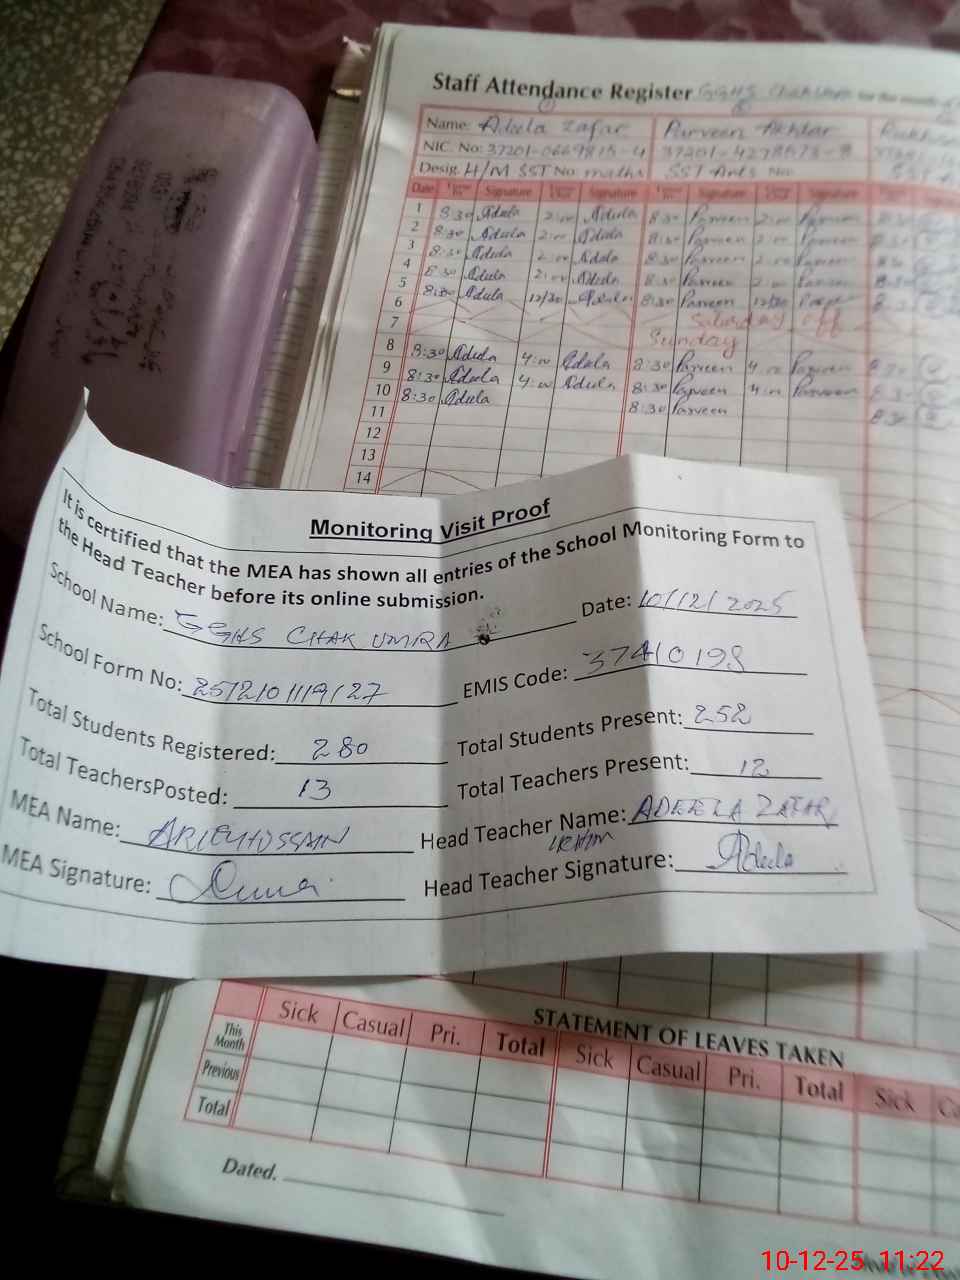 Staff Attendance Register GGHS
Name: Adeela Zafar Parveen Akhtar
NIC. No: 37201-0669815-4 37201-4278673-8
Desig. H/M SST No. maths SST Arts No.
Date Signature Signature Signature Signature
1 8:30 Adula 2:00 Adula 8:30 Parveen 2:00 Parveen
2 8:30 Adula 2:00 Adula 8:30 Parveen 2:00 Parveen
3 8:30 Adula 2:00 Adula 8:30 Parveen 2:00 Parveen
4 8:30 Adula 2:00 Adula 8:30 Parveen 2:00 Parveen
5 8:30 Adula 12/30 Adula 8:30 Parveen 12/30
6 Saturday off
7 Sunday
8 8:30 Adula 4:00 Adula 8:30 Parveen 4:00 Parveen
9 8:30 Adula 4:00 Adula 8:30 Parveen 4:00 Parveen
10 8:30 Adula 8:30 Parveen
11
12
13
14
Monitoring Visit Proof
It is certified that the MEA has shown all entries of the School Monitoring Form to
the Head Teacher before its online submission.
School Name: GGHS CHAK UMRA Date: 10/12/2025
School Form No: EMIS Code: 37410198
Total Students Registered: 280 Total Students Present: 252
Total TeachersPosted: 13 Total Teachers Present: 12
MEA Name: Head Teacher Name: ADEELA ZAFAR
MEA Signature: Head Teacher Signature: Adula
STATEMENT OF LEAVES TAKEN
Sick Casual Pri. Total Sick Casual Pri. Total Sick
This Month
Previous
Total
Dated.
10-12-25 11:22